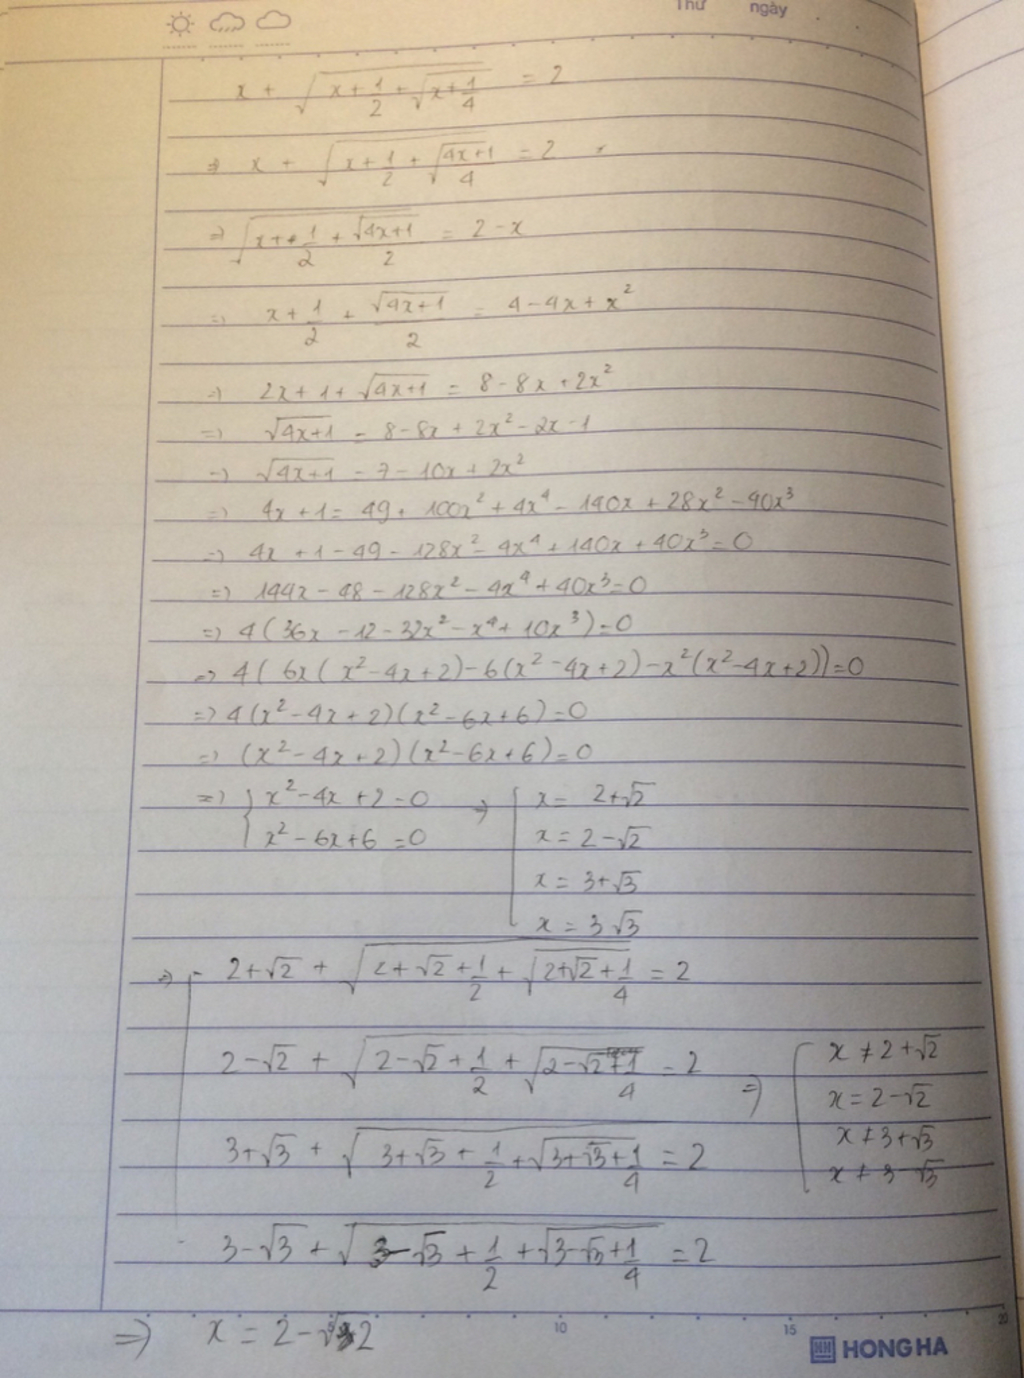 Thứ ngày
x + √(x + 1/2 + √(x + 1/4)) = 2
=> x + √(x + 1/2 + √((4x+1)/4)) = 2
=> √(x + 1/2 + √(4x+1)/2) = 2 - x
=> x + 1/2 + √(4x+1)/2 = 4 - 4x + x²
=> 2x + 1 + √(4x+1) = 8 - 8x + 2x²
=> √(4x+1) = 8 - 8x + 2x² - 2x - 1
=> √(4x+1) = 7 - 10x + 2x²
=> 4x + 1 = 49 + 100x² + 4x⁴ - 140x + 28x² - 40x³
=> 4x + 1 - 49 - 128x² - 4x⁴ + 140x + 40x³ = 0
=> 144x - 48 - 128x² - 4x⁴ + 40x³ = 0
=> 4(36x - 12 - 32x² - x⁴ + 10x³) = 0
=> 4(6x(x² - 4x + 2) - 6(x² - 4x + 2) - x²(x² - 4x + 2)) = 0
=> 4(x² - 4x + 2)(x² - 6x + 6) = 0
=> (x² - 4x + 2)(x² - 6x + 6) = 0
=> { x² - 4x + 2 = 0 => [ x = 2 + √2
x² - 6x + 6 = 0 x = 2 - √2
x = 3 + √3
x = 3 √3
=> 2 + √2 + √(2 + √2 + 1/2 + √(2 + √2 + 1/4)) = 2
2 - √2 + √(2 - √2 + 1/2 + √(2 - √2 + 1/4)) = 2 => [ x ≠ 2 + √2
x = 2 - √2
3 + √3 + √(3 + √3 + 1/2 + √(3 + √3 + 1/4)) = 2 x ≠ 3 + √3
x ≠ 3 - √3
3 - √3 + √(3 - √3 + 1/2 + √(3 - √3 + 1/4)) = 2
=> x = 2 - √2
5 10 15 20
HH HONG HA